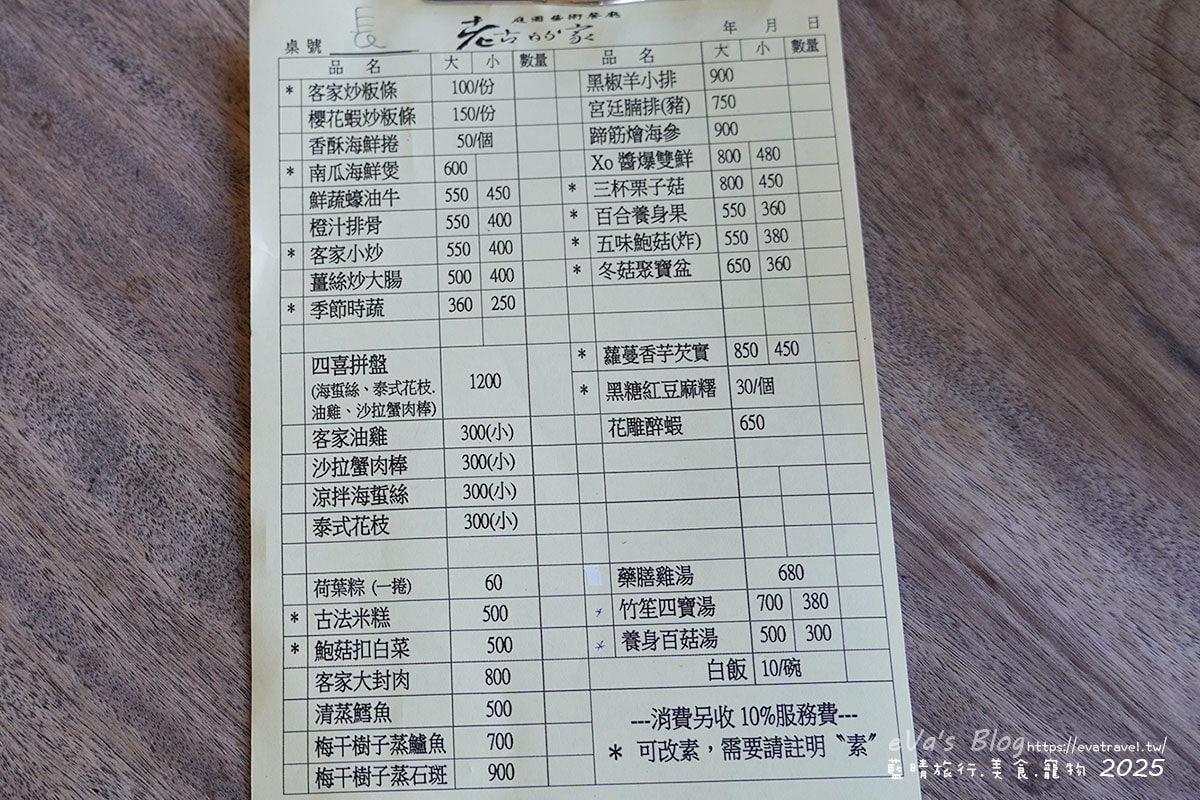 庭園藝術餐廳
老古的家
桌號 長 年 月 日
品名 大 小 數量
* 客家炒粄條 100/份
櫻花蝦炒粄條 150/份
香酥海鮮捲 50/個
* 南瓜海鮮煲 600
鮮蔬蠔油牛 550 450
橙汁排骨 550 400
* 客家小炒 550 400
薑絲炒大腸 500 400
* 季節時蔬 360 250
四喜拼盤 1200
(海蜇絲、泰式花枝.
油雞、沙拉蟹肉棒)
客家油雞 300(小)
沙拉蟹肉棒 300(小)
涼拌海蜇絲 300(小)
泰式花枝 300(小)
荷葉粽 (一捲) 60
* 古法米糕 500
* 鮑菇扣白菜 500
客家大封肉 800
清蒸鱈魚 500
梅干樹子蒸鱸魚 700
梅干樹子蒸石斑 900
品名 大 小 數量
黑椒羊小排 900
宮廷腩排(豬) 750
蹄筋燴海參 900
Xo 醬爆雙鮮 800 480
* 三杯栗子菇 800 450
* 百合養身果 550 360
* 五味鮑菇(炸) 550 380
* 冬菇聚寶盆 650 360
* 蘿蔓香芋芡實 850 450
* 黑糖紅豆麻糬 30/個
花雕醉蝦 650
藥膳雞湯 680
* 竹笙四寶湯 700 380
* 養身百菇湯 500 300
白飯 10/碗
---消費另收 10%服務費---
* 可改素，需要請註明〝素〞
eVa's Blog https://evatravel.tw/
藍晴旅行.美食.寵物 2025